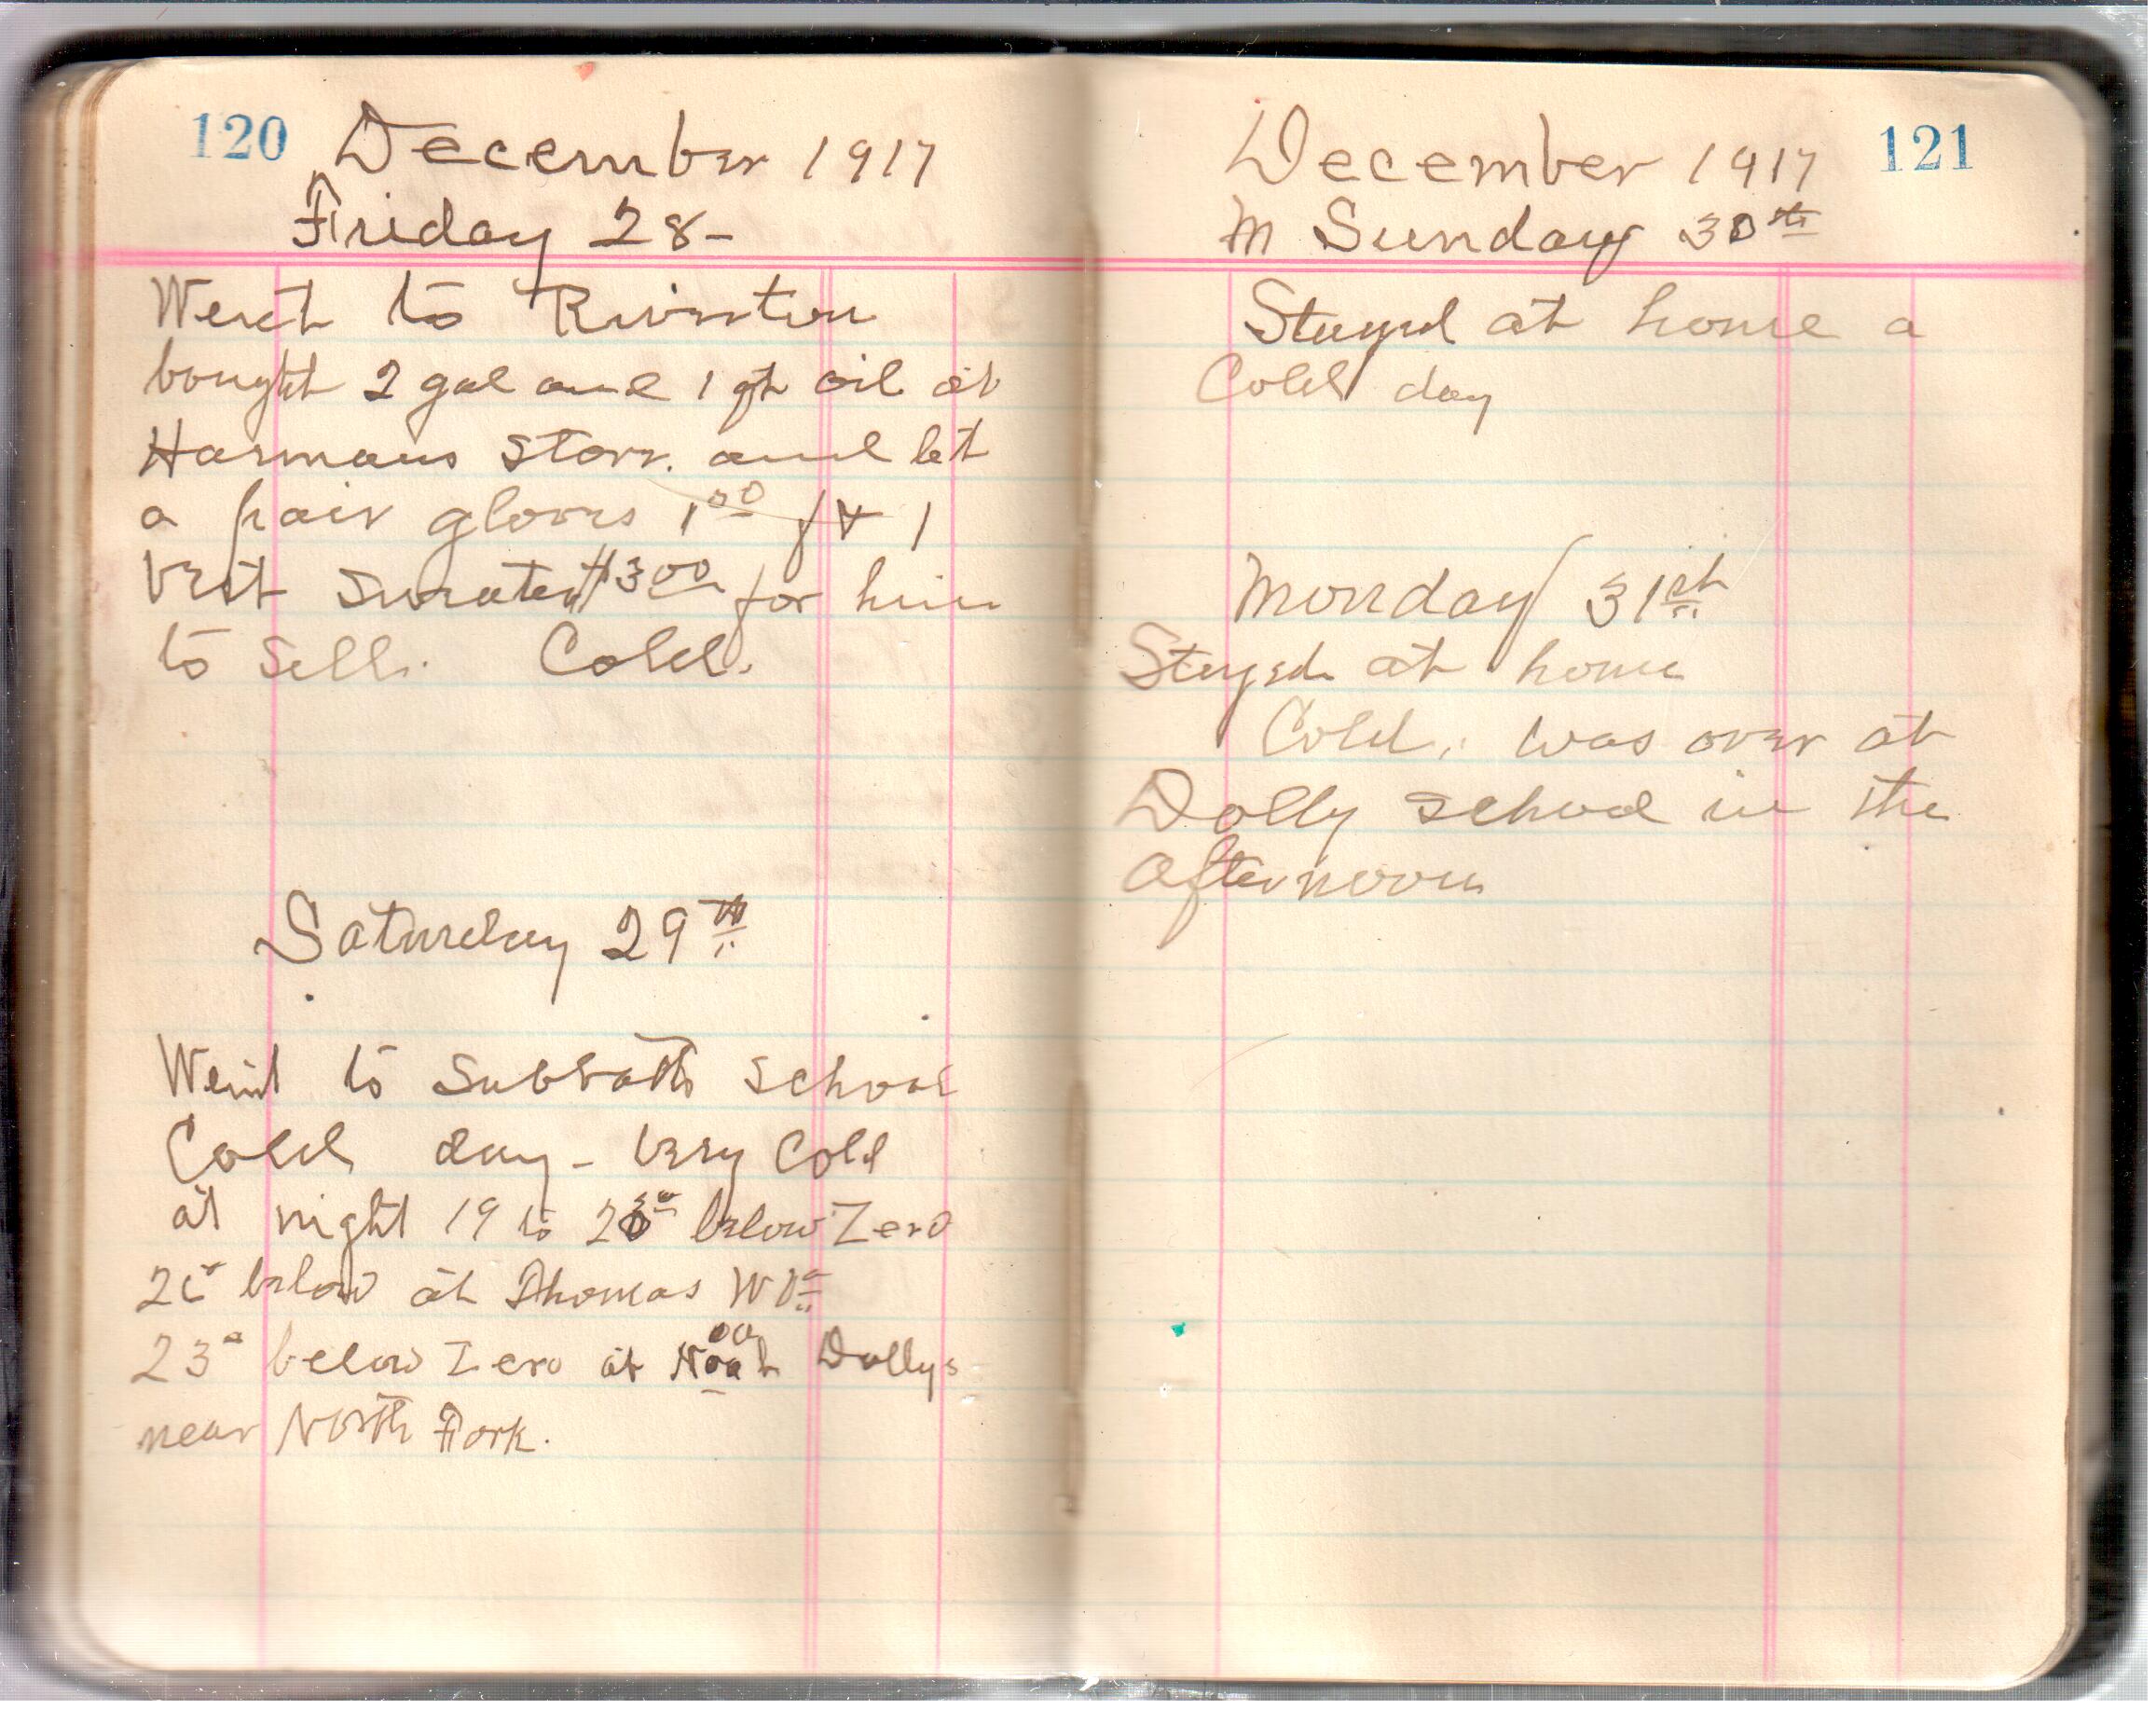 120 December 1917
Friday 28-
Went to Riverton
bought 2 gal and 1 qt oil at
Harmans Store. and let
a pair gloves 1 00 1
Vest Sweater $3 00 for him
to Sell. Cold.
Saturday 29 th
Went to Sabbath School
Cold day - Very Cold
at night 19 to 20° below Zero
below at Thomas
23° below Zero at Noah Dollys
near North Fork.
December 1917 121
M Sunday 30 th
Stayed at home a
Cold day
Monday 31 st
Stayed at home
Cold. was over at
Dolly School in the
afternoon